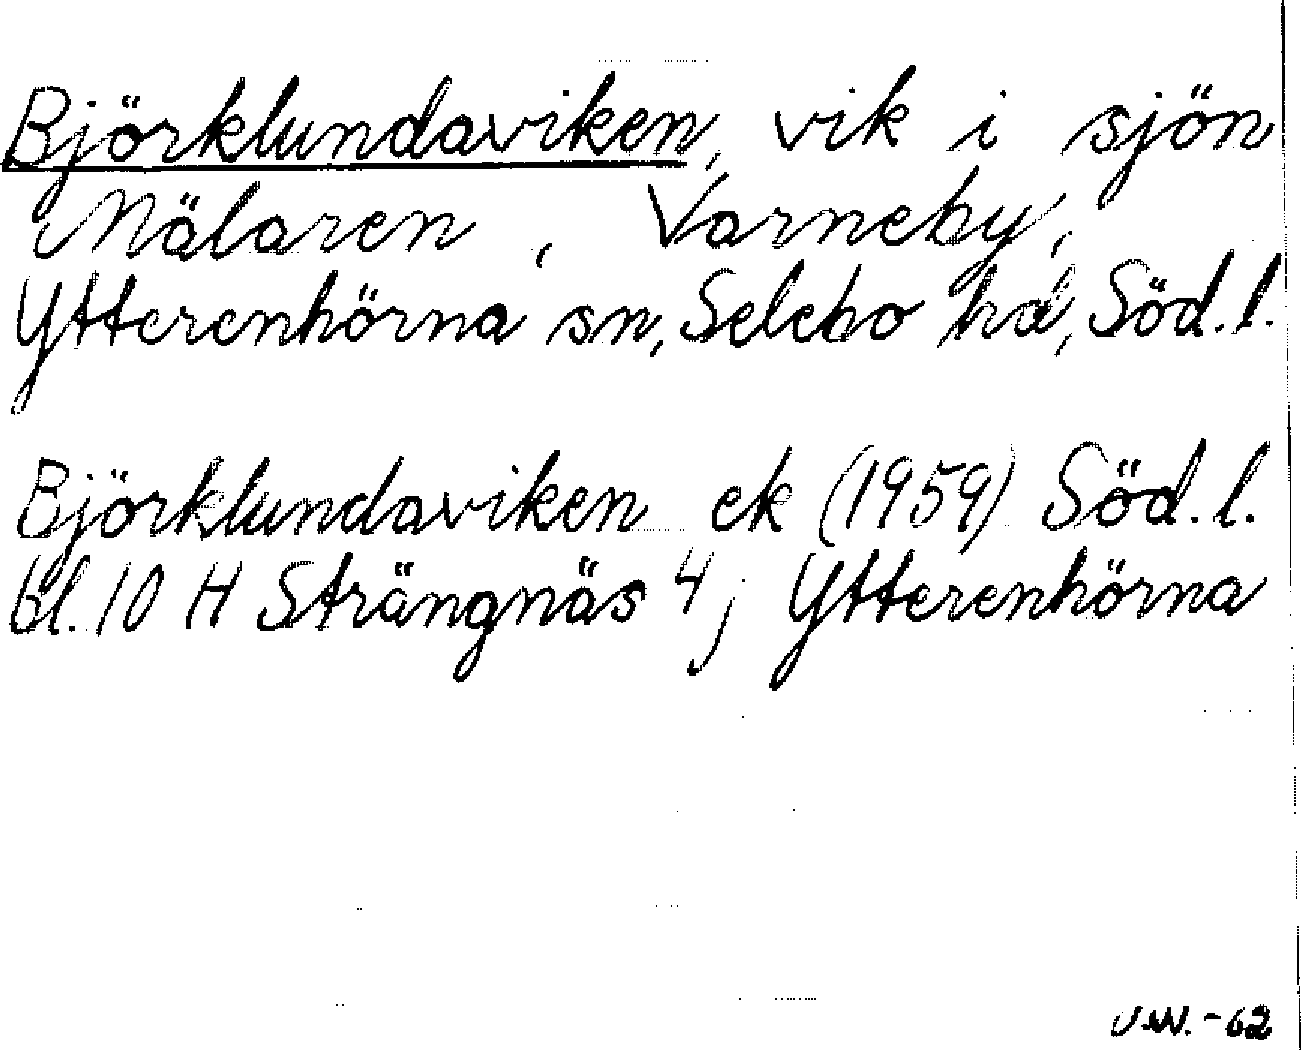 Björklundaviken, vik i sjön
Mälaren, Varneby,
Ytterenhörna sn, Selebo hd, Söd. l.
Björklundaviken ek (1959) Söd. l.
bl. 10 H Strängnäs 4; Ytterenhörna
U.W. -62